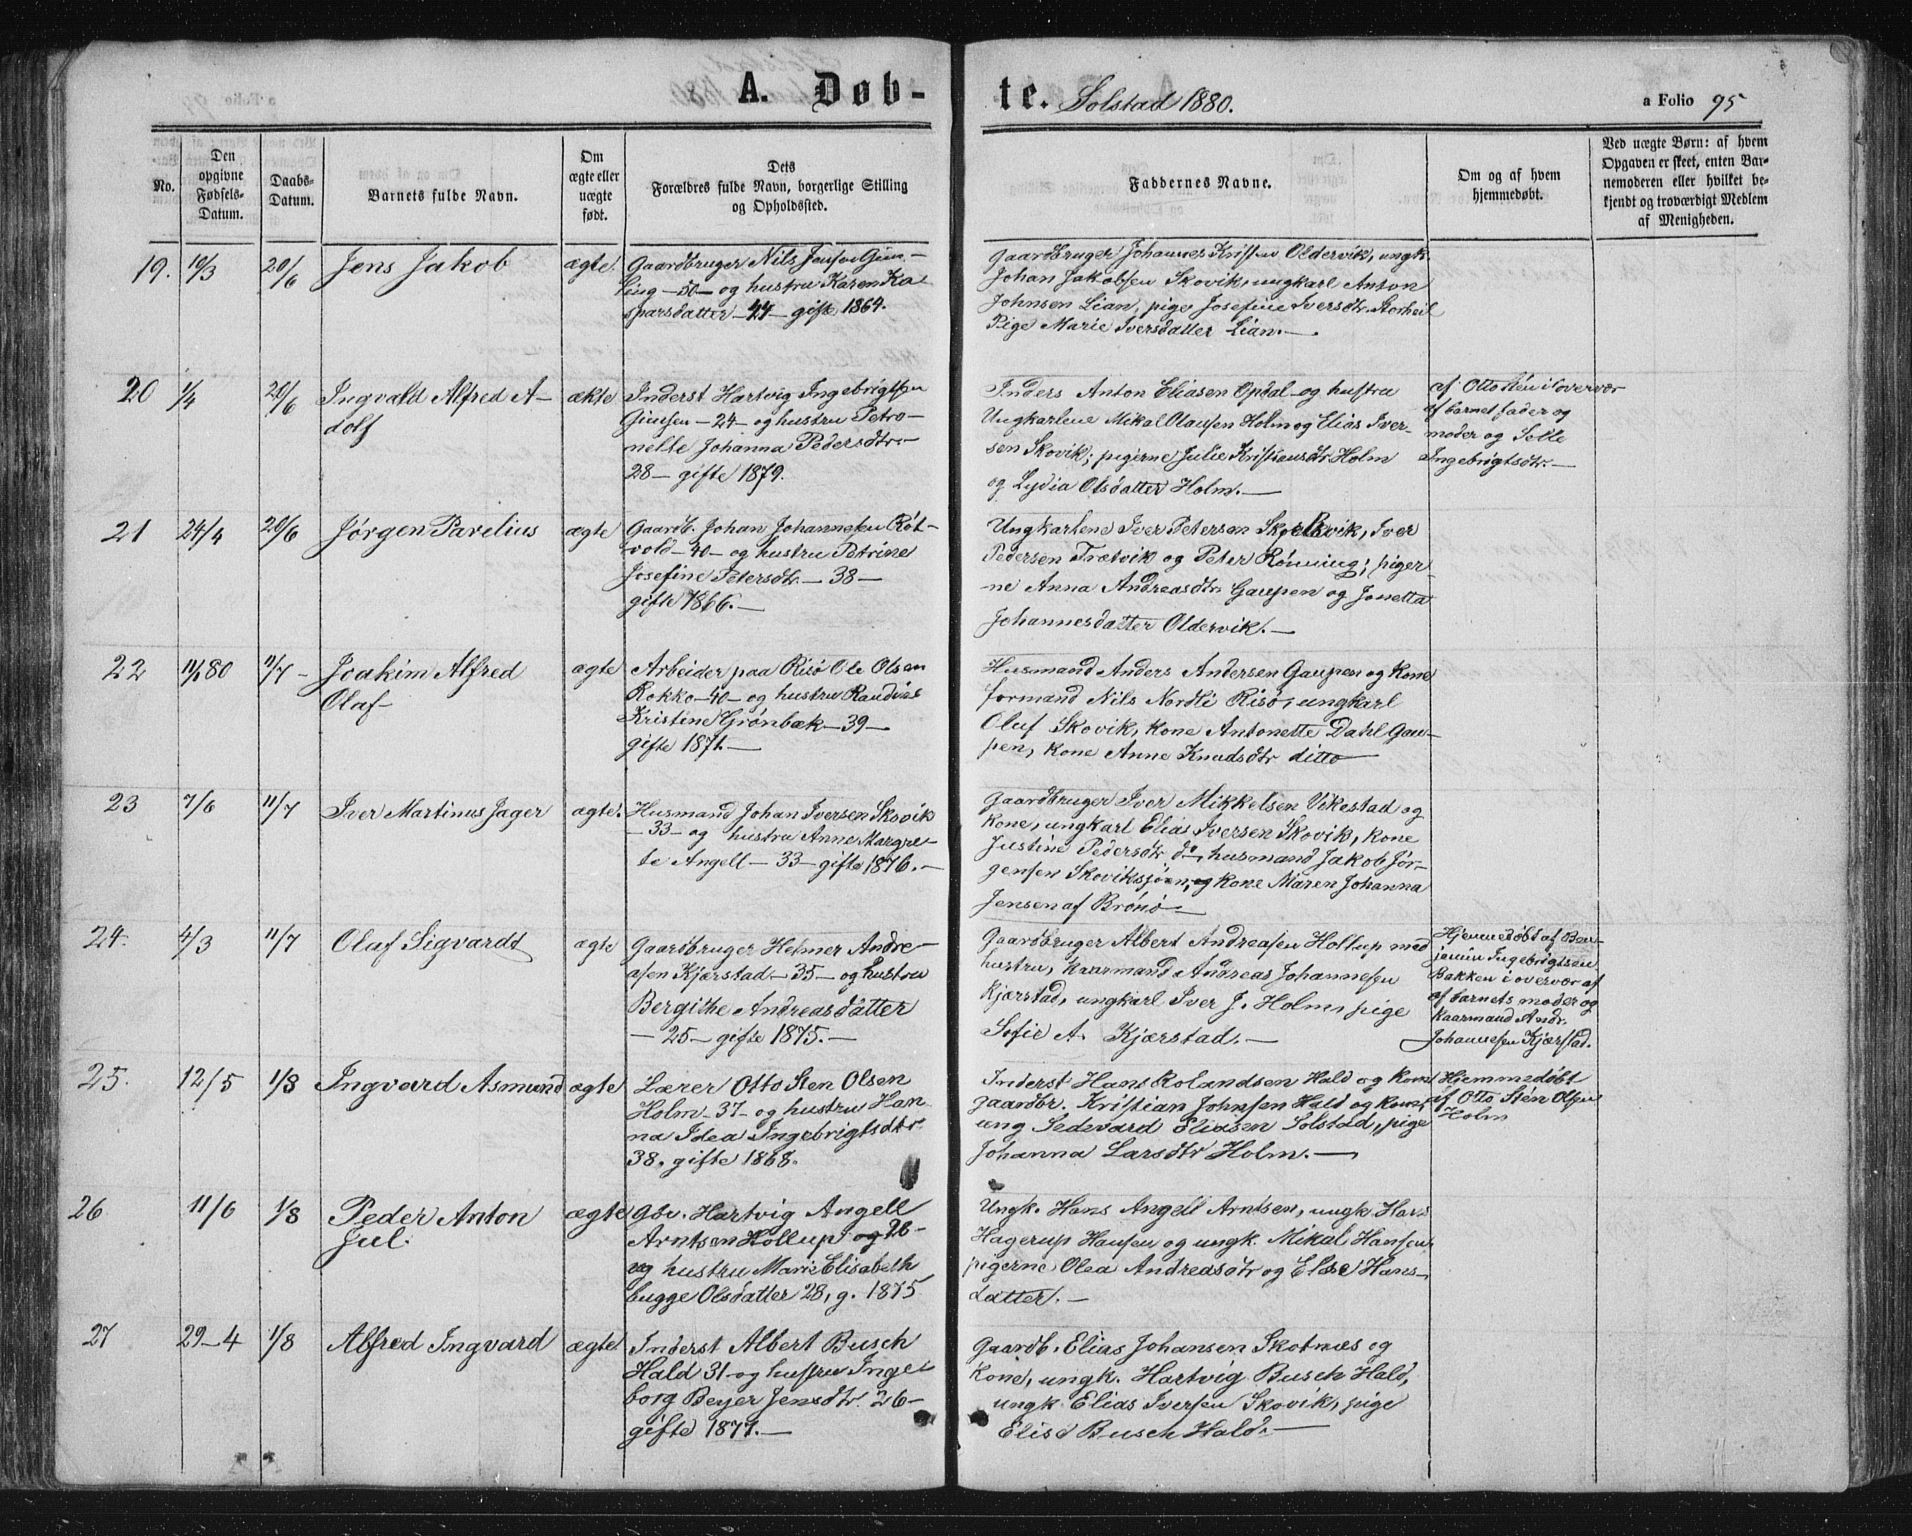 A. Døb-
te. Solstad 1880.
a Folio 95
No.
Den opgivne Fødsels-Datum.
Daabs-Datum.
Barnets fulde Navn.
Om ægte eller uægte født.
Dets Forældres fulde Navn, borgerlige Stilling og Opholdssted.
Faddernes Navne.
Om og af hvem hjemmedøbt.
Ved uægte Børn: af hvem Opgaven er skeet, enten Barnemoderen eller hvilket bekjendt og troværdigt Medlem af Menigheden.
19. 10/3 20/6 Jens Jakob ægte.
Gaardbruger Nils Jensen
ling - 50 - og hustru Karen Ka
sparsdatter - 44 - gift 1864.
Gaardbruger Johannes Kristen Oldervik, ungk.
Johan Jakobsen Skovik, ungkarl Anton
Johnsen Lian, pige Josefine Iversdtr. Storheil
Pige Marie Iversdatter Lian. -
20 1/4 20/6 Ingvald Alfred A-
dolf
ækte
Inderst Hartvig Ingebrigtsen
- 24 - og hustru Petro-
nelle Johanna Pedersdtr. -
28 - gifte 1879.
Inders Anton Eliasen Opdal og hustru
Ungkarlene Mikal Olausen Holm og Elias Iver-
sen Skovik; pigerne Julie Kristiansdtr. Holm
og Lydia Olsdatter Holm. -
af Otto Sten i overvær
af barnets fader og
moder og
Ingebrigtsdtr. -
21 24/4 20/6 Jørgen Parelius ægte
Gaardb. Johan Johannesen Röt-
vold - 40 - og hustru Petrine
Josefine Petersdtr. - 38 -
gifte 1866. -
Ungkarlene Iver Petersen Skjelvik, Iver
Pedersen Trætvik og Peter Rönning; piger-
ne Anna Andreasdtr. Gaupen og Jonetta
Johannesdatter Oldervik. -
22 11/1 80 11/7 - Joakim Alfred
Olaf -
ægte
Arbeider paa Risö Ole Olsen
Rokko - 40 - og hustru Randine
Kristine Grönbæk - 39 -
gifte 1871 -
Husmand Anders Andersen Gaupen og kone
formand Nils Nordli Risö, ungkarl
Oluf Skovik, kone Antonette Dahl Gau-
pen, kone Anne Knudsdtr ditto -
23 7/6 11/7 Iver Martinus Jager ægte.
Husmand Johan Iversen Skovik
- 33 - og hustru Anne Margre-
te Angell - 33 - gifte 1876. -
Gaardbruger Iver Mikkelsen Vikestad og
Kone, ungkarl Elias Iversen Skovik, kone
Justine Pedersdtr do, husmand Jakob Jör-
gensen Skoviksjöen, og kone Maren Johanna
Jensen af Brönö -
24. 4/3 11/7 Olaf Sigvardt ægte
Gaardbruger Helmer Andre-
asen Kjærstad - 35 - og hustru
Bergithe Andreasdatter
- 25 - gifte 1875. -
Gaardbruger Albert Andreasen Hollup med
hustru, Kaarmand Andreas Johannesen
Kjærstad, ungkarl Iver J. Holm, pige
Sofie A. Kjærstad. -
Hjemmedöbt af Ben-
jamin Ingebrigtsen
Bakken i overvær af
af barnets moder og
Kaarmand Andr.
Johannesen Kjærstad.
25. 12/5 1/8 Ingvard Asmund ægte
Lærer Otto Sten Olsen
Holm - 37 - og hustru Han
na Idea Ingebrigtsdtr
38, gifte 1868.
Inderst Hans Rolandsen Hald og kone
gaardbr. Kristian Johnsen Hald og kone,
ung Sedevard Eliasen Solstad, pige
Johanna Larsdtr Holm. -
Hjemmedöbt
af Otto Sten Olsen
Holm
26 11/6 1/8 Peder Anton
Jul.
ægte
Gbr. Hartvig Angell
Arntsen Hollup og 26 -
og hustru Marie Elisabeth
bugge Olsdatter 28, g. 1875
Ungk. Hans Angell Arntsen, ungk Hans
Hagerup Hansen og ungk. Mikal Hansen
pigerne Olea Andreasdtr og Else Hans-
datter. -
27 29-4 1/8 Alfred Ingvard ægte
Inderst Albert Busch
Hald 31 - og hustru Inge
borg Beyer Jensdtr. 26 -
gifte 1877. -
Gaardb. Elias Johansen Skotnæs og
Kone, ungk. Hartvig Busch Hald,
ungk. Elias Iversen Skovik, pige
Elise Busch Hald. -